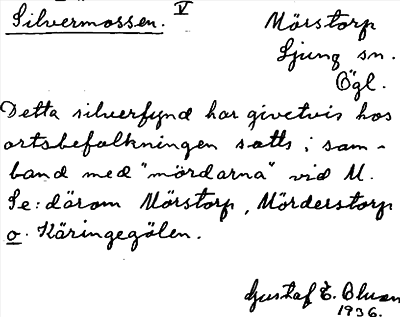 Silvermossen. V Mörstorp
Ljung sn.
Ögl.
Detta silverfynd har givetvis hos
ortsbefolkningen satts i sam-
band med "mördarna" vid M.
Se: därom Mörstorp, Mörderstorp
o. Käringegölen.
Gustaf E. Bluum
1936.